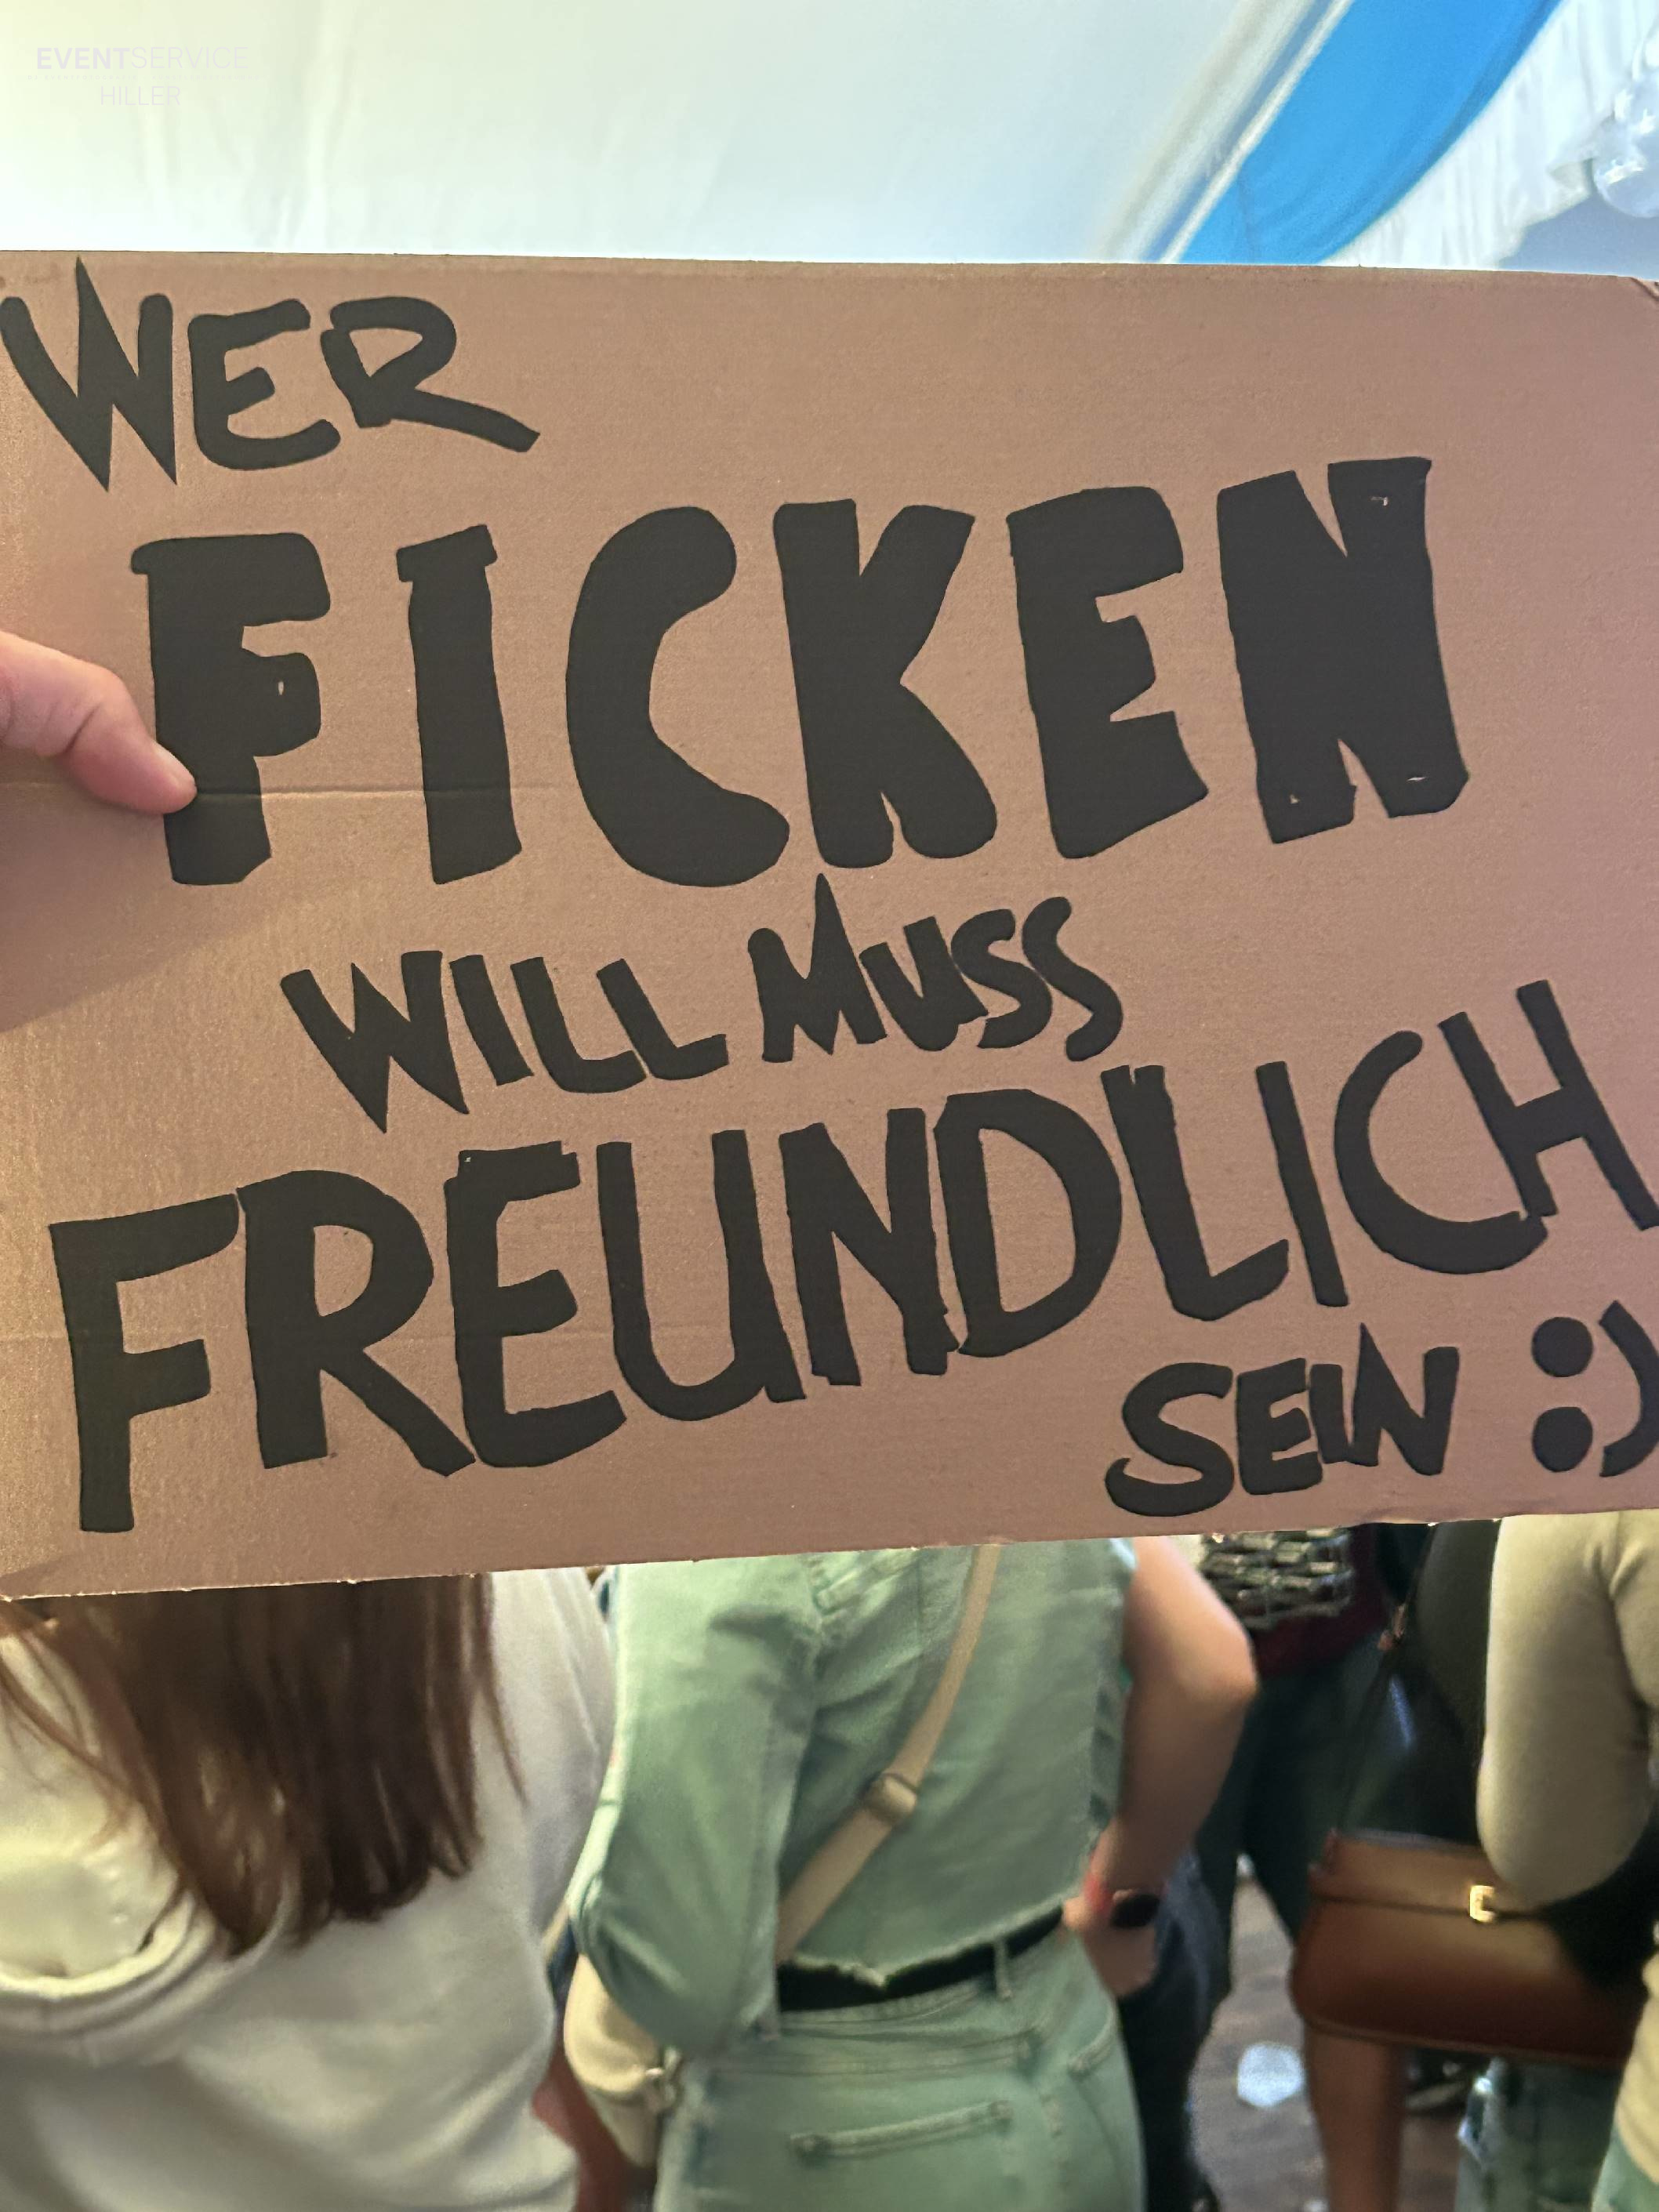 EVENTSERVICE
HILLER
WER
FICKEN
WILL MUSS
FREUNDLICH
SEIN :)